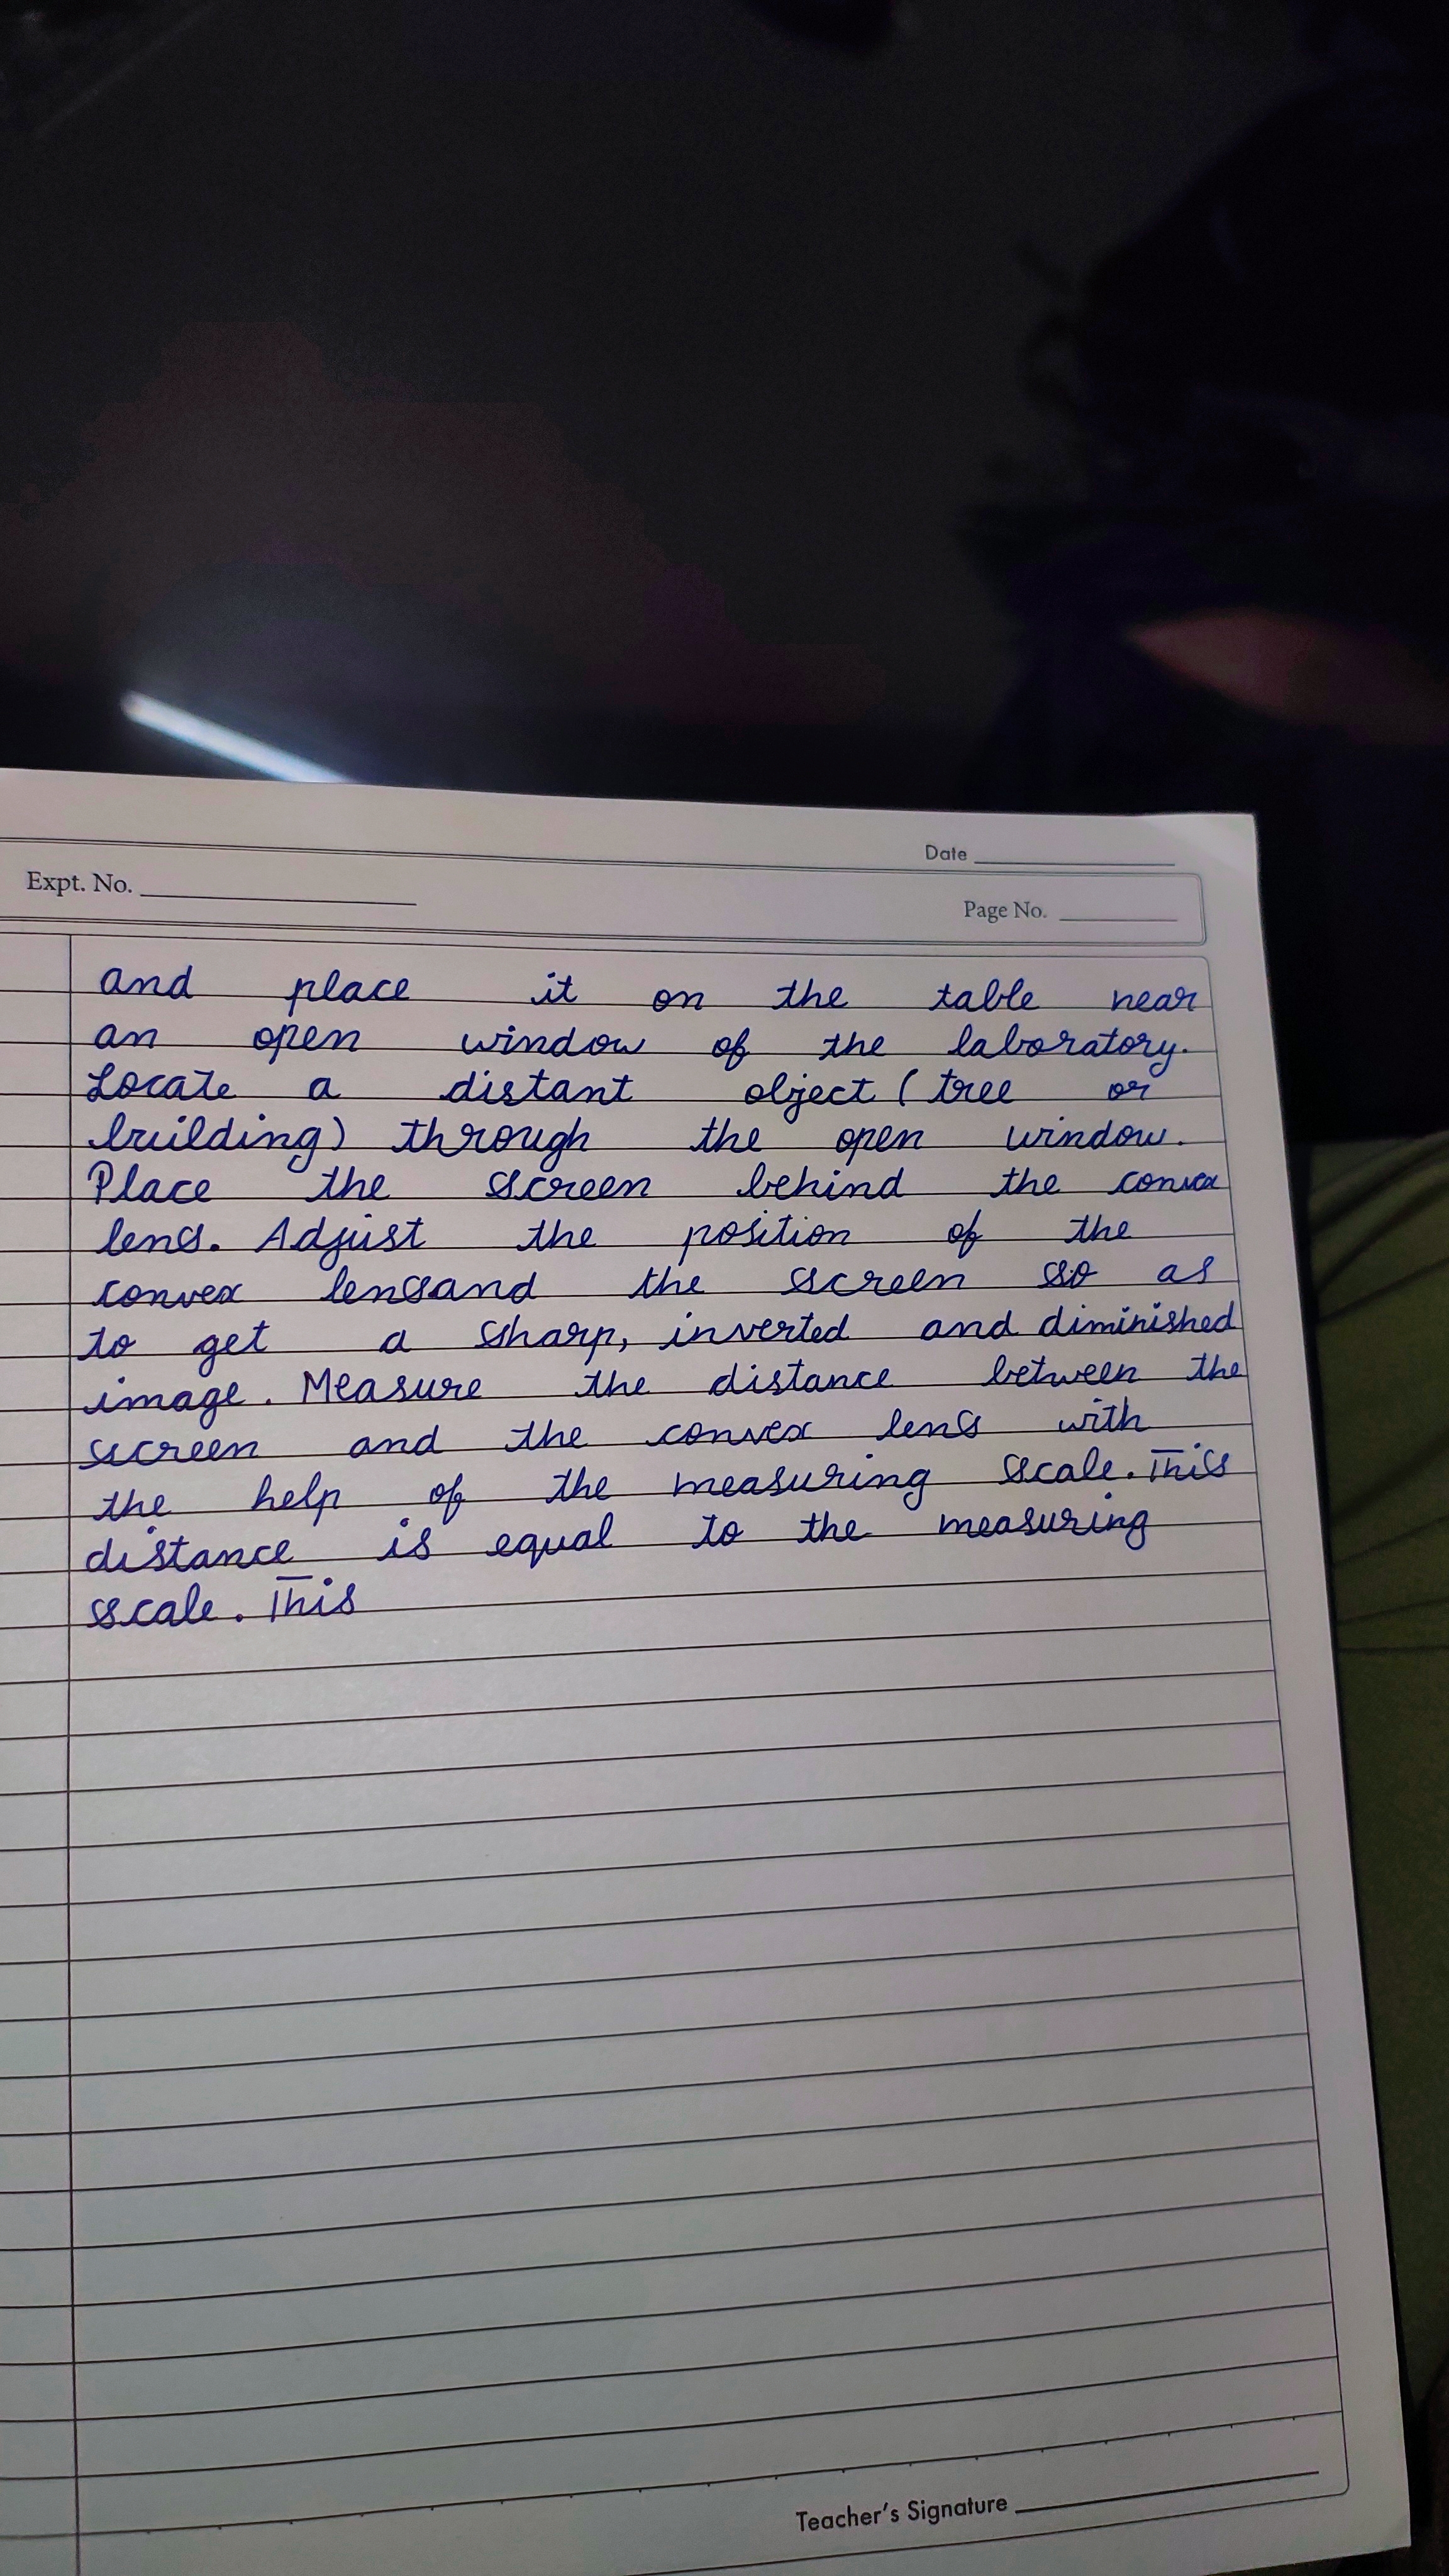 Date
Expt. No.
Page No.
and place it on the table near
an open window of the laboratory.
Locate a distant object (tree or
building) through the open window.
Place the screen behind the convex
lens. Adjust the position of the
convex lensand the screen so as
to get a sharp, inverted and diminished
image. Measure the distance between the
screen and the convex lens with
the help of the measuring scale. This
distance is equal to the measuring
scale. This
Teacher's Signature